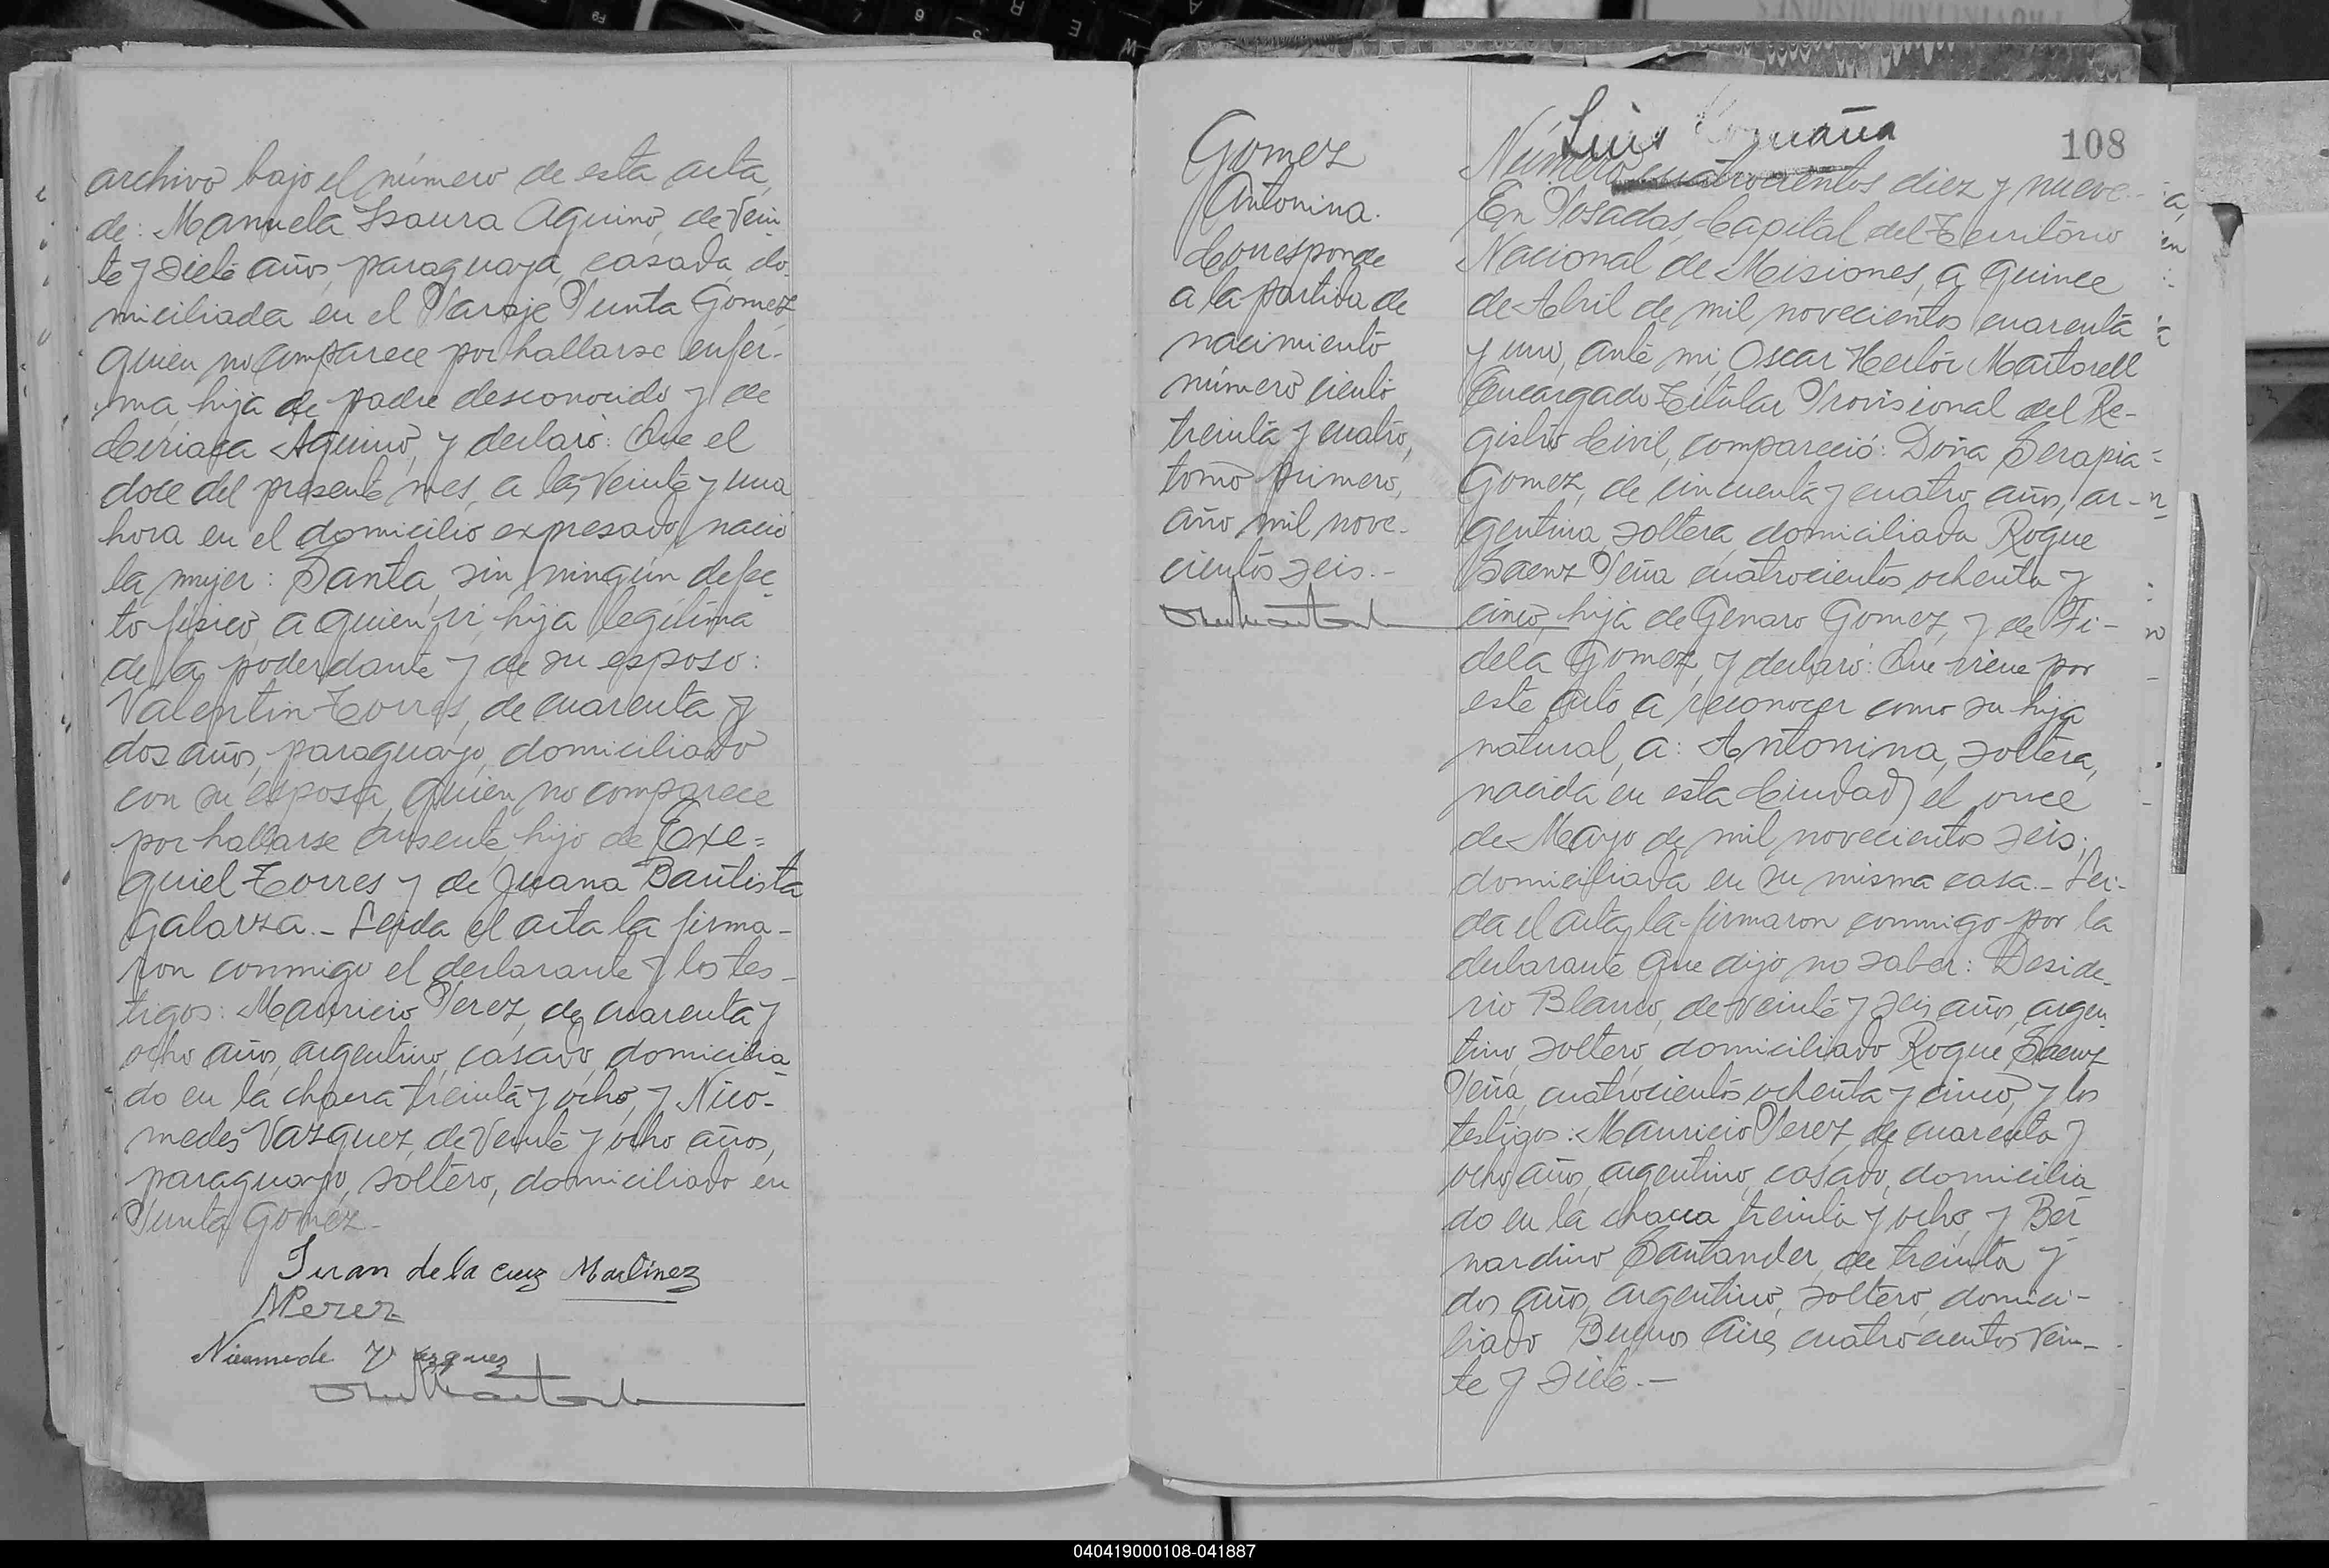 archivo bajo el número de esta acta,
de: Manuela Isaura Aquino, de vein-
te y siete años, paraguaya, casada, do-
miciliada en el Paraje Punta Gomez,
quien no comparece por hallarse enfer-
ma, hija de padre desconocido y de
Ciriaca Aquino, y declaró: Que el
doce del presente mes, a las veinte y una
hora en el domicilio expresado, nació
la mujer: Santa, sin ningún defec-
to físico, a quien vi, hija legítima
de la poderdante y de su esposo:
Valentin Torres, de cuarenta y
dos años, paraguayo, domiciliado
con su esposa, quien no comparece
por hallarse ausente, hijo de Exe=
quiel Torres y de Juana Bautista
Galarza.- Leida el acta la firma-
ron conmigo el declarante y los tes-
tigos: Mauricio Perez, de cuarenta y
ocho años, argentino, casado, domicilia-
do en la chacra treinta y ocho, y Nico-
medes Vazquez, de veinte y ocho años,
paraguayo, soltero, domiciliado en
Punta Gomez.-
Juan de la cruz Martinez
MPerez
Nicomede Vazquez
Gomez
Antonina.
Corresponde
a la partida de
nacimiento
número ciento
treinta y cuatro,
tomo primero,
año mil nove-
cientos seis.-
Luis
108
Número cuatrocientos diez y nueve-
En Posadas, Capital del Territorio
Nacional de Misiones, a quince
de Abril de mil novecientos cuarenta
y uno, ante mi Oscar Hector Martorell
Encargado Titular Provisional del Re-
gistro Civil, compareció: Doña Serapia=
Gomez, de cincuenta y cuatro años, ar-
gentina, soltera, domiciliada Roque
Saenz Peña cuatrocientos ochenta y
cinco, hija de Genaro Gomez, y de Fi-
dela Gomez, y declaró: Que viene por
este acto a reconocer como su hija
natural, a: Antonina, soltera,
nacida en esta Ciudad, el once
de Mayo de mil novecientos seis;
domiciliada en su misma casa.- Lei-
da el acta, la firmaron conmigo por la
declarante que dijo no saber: Deside-
rio Blanco, de veinte y seis años, argen-
tino, soltero, domiciliado Roque Saenz
Peña, cuatrocientos ochenta y cinco, y los
testigos: Mauricio Perez, de cuarenta y
ocho años, argentino, casado, domicilia
do en la chacra treinta y ocho, y Ber
nardino Santander, de treinta y
dos años, argentino, soltero, domici-
liado Buenos Aires cuatrocientos vein-
te y siete.-
040419000108-041887